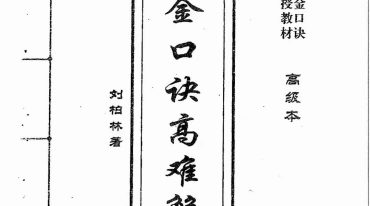 金口诀
授教材
高级本
金口诀高难
刘柏林著